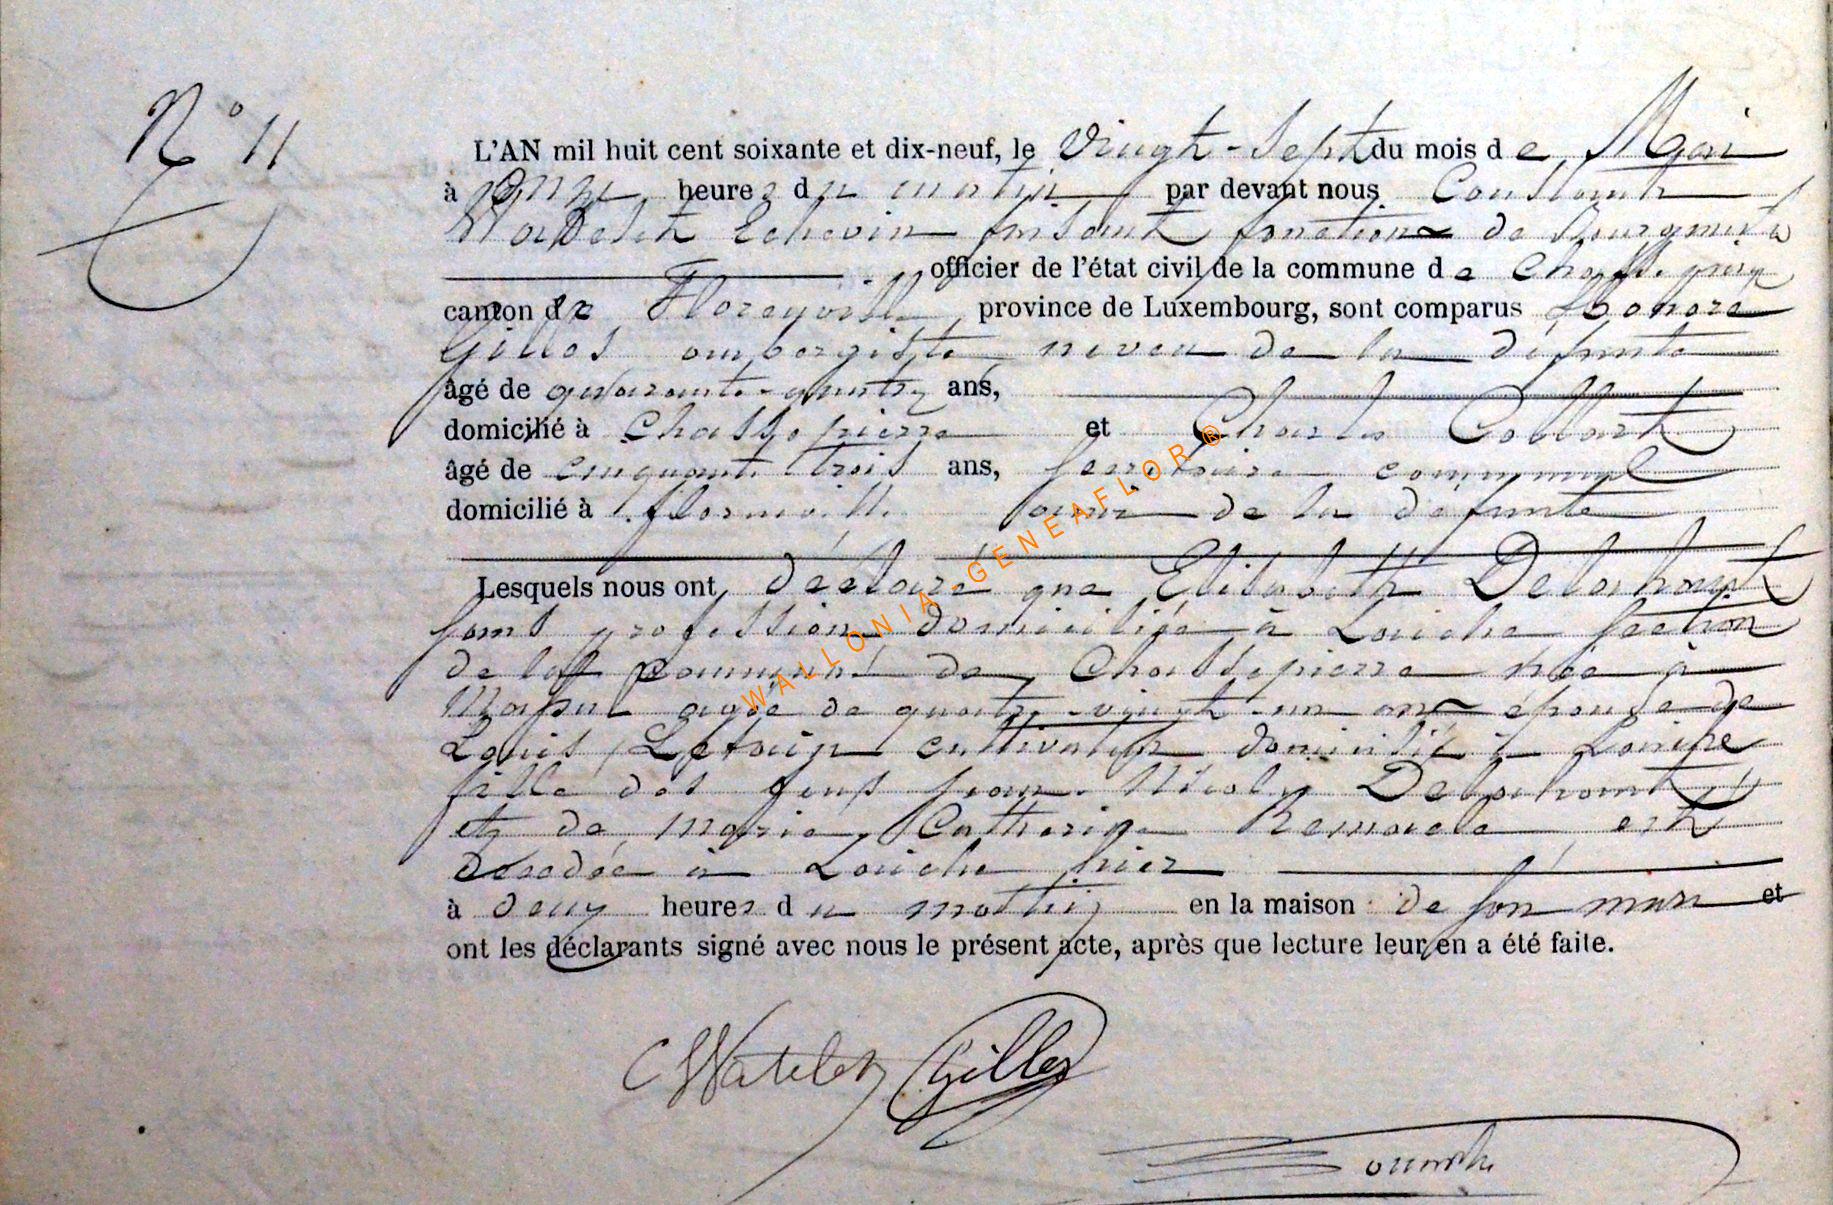 N° 11
L'AN mil huit cent soixante et dix-neuf, le Vingt-Sept du mois de Mai
à onze heures du matin par devant nous Constant
Watelet Echevin faisant fonctions de Bourgmestre
officier de l'état civil de la commune de Chassepierre
canton de Florenville province de Luxembourg, sont comparus Honoré
Gilles aubergiste neveu de la défunte
âgé de quarante-quatre ans,
domicilié à Chassepierre et Charles Collart
âgé de cinquante trois ans, secrétaire communal
domicilié à florenville ami de la défunte
Lesquels nous ont déclaré que Elisabeth Delahaut
sans profession domiciliée à Laiche section
de la commune de Chassepierre née à
agée de quatre-vingt-un ans épouse de
Louis cultivateur domicilié à Laiche
fille des feus jean Nicolas Delahaut
et de Marie Catherine Remacle est
décédée à Laiche hier
à deux heures du matin en la maison de son mari et
ont les déclarants signé avec nous le présent acte, après que lecture leur en a été faite.
C Watelet Gilles
WALLONIA GENEAFLOR®